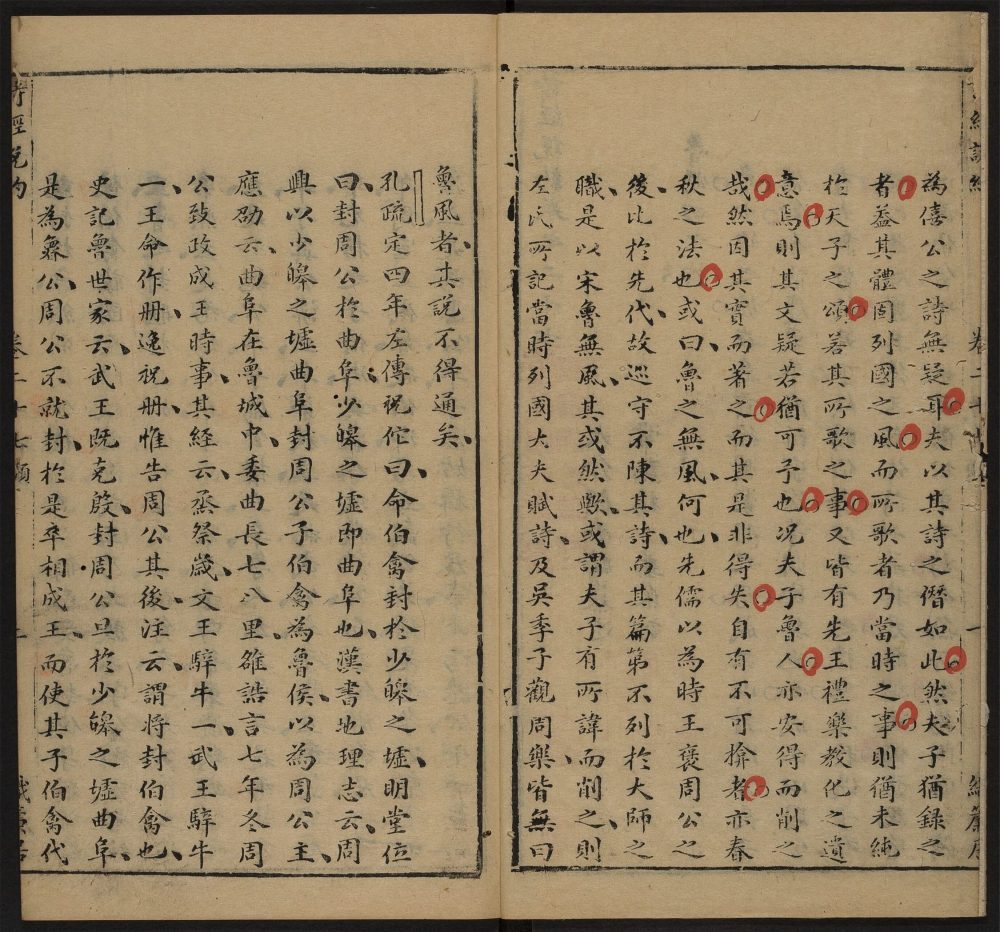 為僖公之詩無疑耳夫以其詩之僭如此然夫子猶錄之
者葢其體固列國之風而所歌者乃當時之事則猶未純
於天子之頌若其所歌之事又皆有先王禮樂教化之遺
意焉則其文疑若猶可予也况夫子魯人亦安得而削之
哉然因其實而著之而其是非得失自有不可揜者亦春
秋之法也或曰魯之無風何也先儒以為時王褒周公之
後比於先代故巡守不陳其詩而其篇第不列於大師之
職是以宋魯無風其或然歟或謂夫子有所諱而削之則
左氏所記當時列國大夫賦詩及吳季子觀周樂皆無曰
魯風者其說不得通矣
孔疏定四年左傳祝佗曰命伯禽封於少皞之墟明堂位
曰封周公於曲阜少皞之墟即曲阜也漢書地理志云周
興以少皞之墟曲阜封周公子伯禽為魯侯以為周公主
應劭云曲阜在魯城中委曲長七八里雒誥言七年冬周
公致政成王時事其経云烝祭歲文王騂牛一武王騂牛
一王命作册逸祝册惟告周公其後注云謂将封伯禽也
史記魯世家云武王既克殷封周公旦於少皞之墟曲阜
是為魯公周公不就封於是卒相成王而使其子伯禽代
詩經說約
卷二十七頌